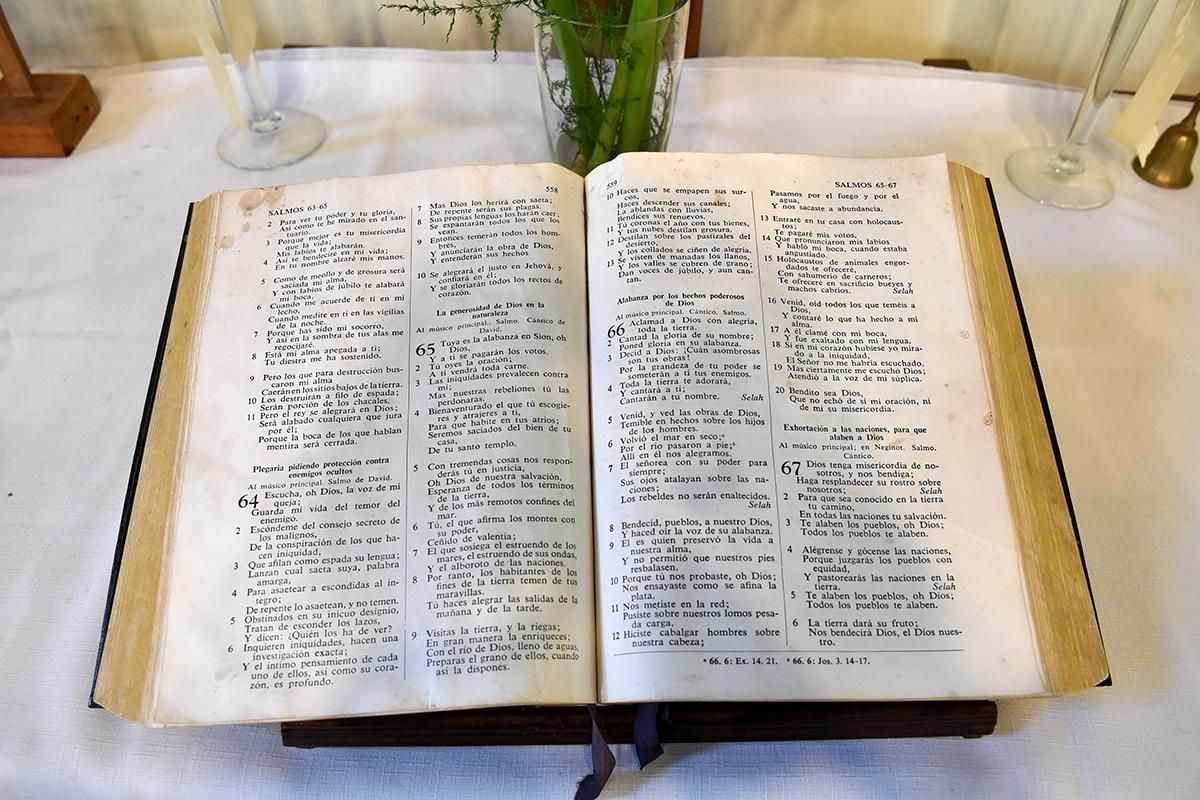 558
SALMOS 63-65
2 Para ver tu poder y tu gloria,
Así como te he mirado en el san-
tuario.
3 Porque mejor es tu misericordia
que la vida;
Mis labios te alabarán.
4 Así te bendeciré en mi vida;
En tu nombre alzaré mis manos.
5 Como de meollo y de grosura será
saciada mi alma,
Y con labios de júbilo te alabará
mi boca,
6 Cuando me acuerde de ti en mi
lecho,
Cuando medite en ti en las vigilias
de la noche.
7 Porque has sido mi socorro,
Y así en la sombra de tus alas me
regocijaré.
8 Está mi alma apegada a ti;
Tu diestra me ha sostenido.
9 Pero los que para destrucción bus-
caron mi alma
Caerán en los sitios bajos de la tierra.
10 Los destruirán a filo de espada;
Serán porción de los chacales.
11 Pero el rey se alegrará en Dios;
Será alabado cualquiera que jura
por él;
Porque la boca de los que hablan
mentira será cerrada.
Plegaria pidiendo protección contra
enemigos ocultos
Al músico principal. Salmo de David.
64 Escucha, oh Dios, la voz de mi
queja;
Guarda mi vida del temor del
enemigo.
2 Escóndeme del consejo secreto de
los malignos,
De la conspiración de los que ha-
cen iniquidad,
3 Que afilan como espada su lengua;
Lanzan cual saeta suya, palabra
amarga,
4 Para asaetear a escondidas al ín-
tegro;
De repente lo asaetean, y no temen.
5 Obstinados en su inicuo designio,
Tratan de esconder los lazos,
Y dicen: ¿Quién los ha de ver?
6 Inquieren iniquidades, hacen una
investigación exacta;
Y el íntimo pensamiento de cada
uno de ellos, así como su cora-
zón, es profundo.
7 Mas Dios los herirá con saeta;
De repente serán sus plagas.
8 Sus propias lenguas los harán caer;
Se espantarán todos los que los
vean.
9 Entonces temerán todos los hom-
bres,
Y anunciarán la obra de Dios,
Y entenderán sus hechos.
10 Se alegrará el justo en Jehová, y
confiará en él;
Y se gloriarán todos los rectos de
corazón.
La generosidad de Dios en la
naturaleza
Al músico principal. Salmo. Cántico de
David.
65 Tuya es la alabanza en Sion, oh
Dios,
Y a ti se pagarán los votos.
2 Tú oyes la oración;
A ti vendrá toda carne.
3 Las iniquidades prevalecen contra
mí;
Mas nuestras rebeliones tú las
perdonarás.
4 Bienaventurado el que tú escogie-
res y atrajeres a ti,
Para que habite en tus atrios;
Seremos saciados del bien de tu
casa,
De tu santo templo.
5 Con tremendas cosas nos respon-
derás tú en justicia,
Oh Dios de nuestra salvación,
Esperanza de todos los términos
de la tierra,
Y de los más remotos confines del
mar.
6 Tú, el que afirma los montes con
su poder,
Ceñido de valentía;
7 El que sosiega el estruendo de los
mares, el estruendo de sus ondas,
Y el alboroto de las naciones.
8 Por tanto, los habitantes de los
fines de la tierra temen de tus
maravillas.
Tú haces alegrar las salidas de la
mañana y de la tarde.
9 Visitas la tierra, y la riegas;
En gran manera la enriqueces;
Con el río de Dios, lleno de aguas,
Preparas el grano de ellos, cuando
así la dispones.
559
SALMOS 65-67
10 Haces que se empapen sus sur-
cos,
Haces descender sus canales;
La ablandas con lluvias,
Bendices sus renuevos.
11 Tú coronas el año con tus bienes,
Y tus nubes destilan grosura.
12 Destilan sobre los pastizales del
desierto,
Y los collados se ciñen de alegría.
13 Se visten de manadas los llanos,
Y los valles se cubren de grano;
Dan voces de júbilo, y aun can-
tan.
Alabanza por los hechos poderosos
de Dios
Al músico principal. Cántico. Salmo.
66 Aclamad a Dios con alegría,
toda la tierra.
2 Cantad la gloria de su nombre;
Poned gloria en su alabanza.
3 Decid a Dios: ¡Cuán asombrosas
son tus obras!
Por la grandeza de tu poder se
someterán a ti tus enemigos.
4 Toda la tierra te adorará,
Y cantará a ti;
Cantarán a tu nombre. Selah
5 Venid, y ved las obras de Dios,
Temible en hechos sobre los hijos
de los hombres.
6 Volvió el mar en seco;ª
Por el río pasaron a pie;ᵇ
Allí en él nos alegramos.
7 El señorea con su poder para
siempre;
Sus ojos atalayan sobre las na-
ciones;
Los rebeldes no serán enaltecidos.
Selah
8 Bendecid, pueblos, a nuestro Dios,
Y haced oír la voz de su alabanza.
9 El es quien preservó la vida a
nuestra alma,
Y no permitió que nuestros pies
resbalasen.
10 Porque tú nos probaste, oh Dios;
Nos ensayaste como se afina la
plata.
11 Nos metiste en la red;
Pusiste sobre nuestros lomos pesa-
da carga.
12 Hiciste cabalgar hombres sobre
nuestra cabeza;
Pasamos por el fuego y por el
agua,
Y nos sacaste a abundancia.
13 Entraré en tu casa con holocaus-
tos;
Te pagaré mis votos,
14 Que pronunciaron mis labios
Y habló mi boca, cuando estaba
angustiado.
15 Holocaustos de animales engor-
dados te ofreceré,
Con sahumerio de carneros;
Te ofreceré en sacrificio bueyes y
machos cabríos. Selah
16 Venid, oíd todos los que teméis a
Dios,
Y contaré lo que ha hecho a mi
alma.
17 A él clamé con mi boca,
Y fue exaltado con mi lengua.
18 Si en mi corazón hubiese yo mira-
do a la iniquidad,
El Señor no me habría escuchado.
19 Mas ciertamente me escuchó Dios;
Atendió a la voz de mi súplica.
20 Bendito sea Dios,
Que no echó de sí mi oración, ni
de mí su misericordia.
Exhortación a las naciones, para que
alaben a Dios
Al músico principal; en Neginot. Salmo.
Cántico.
67 Dios tenga misericordia de no-
sotros, y nos bendiga;
Haga resplandecer su rostro sobre
nosotros; Selah
2 Para que sea conocido en la tierra
tu camino,
En todas las naciones tu salvación.
3 Te alaben los pueblos, oh Dios;
Todos los pueblos te alaben.
4 Alégrense y gócense las naciones,
Porque juzgarás los pueblos con
equidad,
Y pastorearás las naciones en la
tierra. Selah
5 Te alaben los pueblos, oh Dios;
Todos los pueblos te alaben.
6 La tierra dará su fruto;
Nos bendecirá Dios, el Dios nues-
tro.
ª 66. 6: Ex. 14. 21. ᵇ 66. 6: Jos. 3. 14-17.